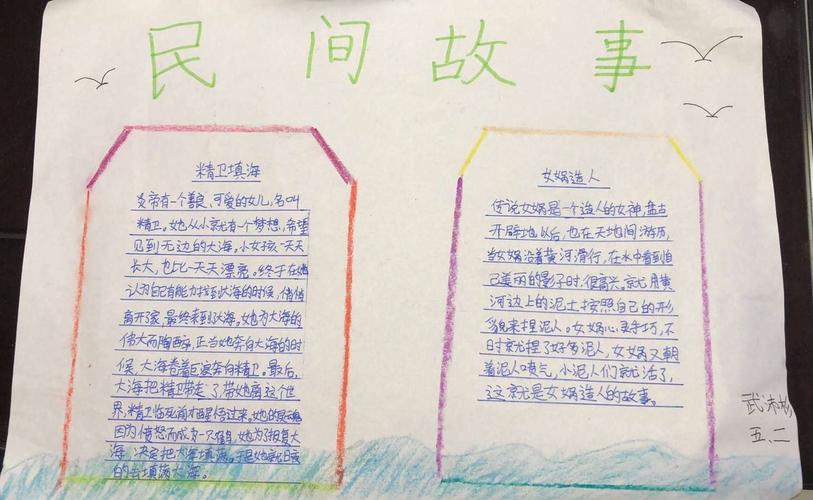 民间故事
精卫填海
炎帝有一个善良、可爱的女儿,名叫
精卫。她从小就有一个梦想,希望
见到无边的大海,小女孩一天天
长大,也比一天天漂亮。终于在她
认为自己有能力找到大海的时候,悄悄
离开了家,最终来到大海。她为大海的
伟大而陶醉,正当她奔向大海的时
候,大海卷着巨浪奔向精卫。最后,
大海把精卫带走了,带她离这个世
界,精卫临死前才醒悟过来。她的灵魂
因为愤怒而成为一只,她为了报复大
海,决定把大海填满。于是她就日夜
的去填满大海。
女娲造人
传说女娲是一个造人的女神,盘古
开辟地以后,也在天地间游历,
当女娲沿着黄河滑行,在水中看到自
己美丽的影子时,很高兴,就用黄
河边上的泥土按照自己的形
貌来捏泥人。女娲心灵手巧,不
时就捏了好多泥人,女娲又朝
着泥人喷气,小泥人们就活了,
这就是女娲造人的故事。
武沐
五、二